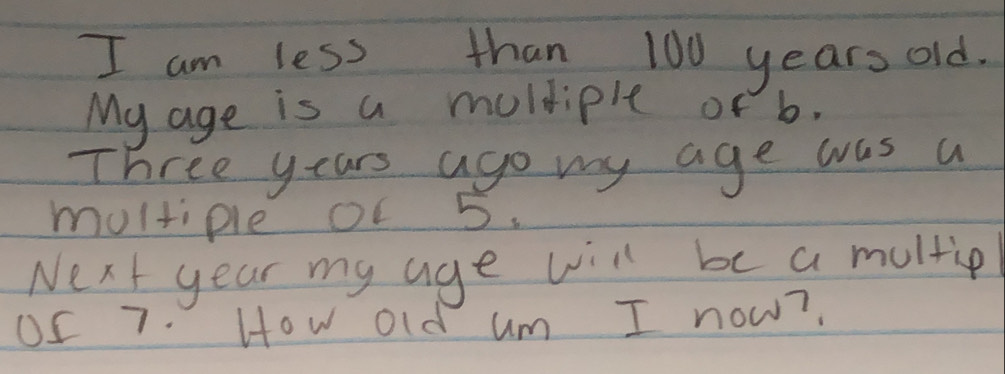 I am less than 100 years old.
My age is a multiple of 6.
Three years ago my age was a
multiple of 5.
Next year my age will be a multipl
of 7. How old am I now?.